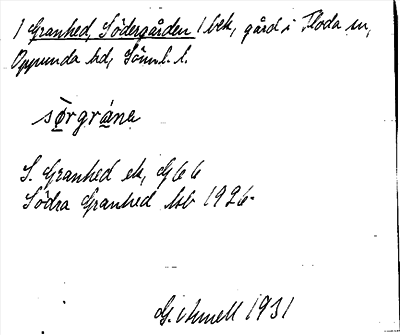 1 Granhed, Södergården 1 bek, gård i Floda sn,
Oppunda hd, Söml. l.
sörgrána
S. Granhed ek, G 6 6
Södra Granhed Jsb 1926
G. Ahnell 1931